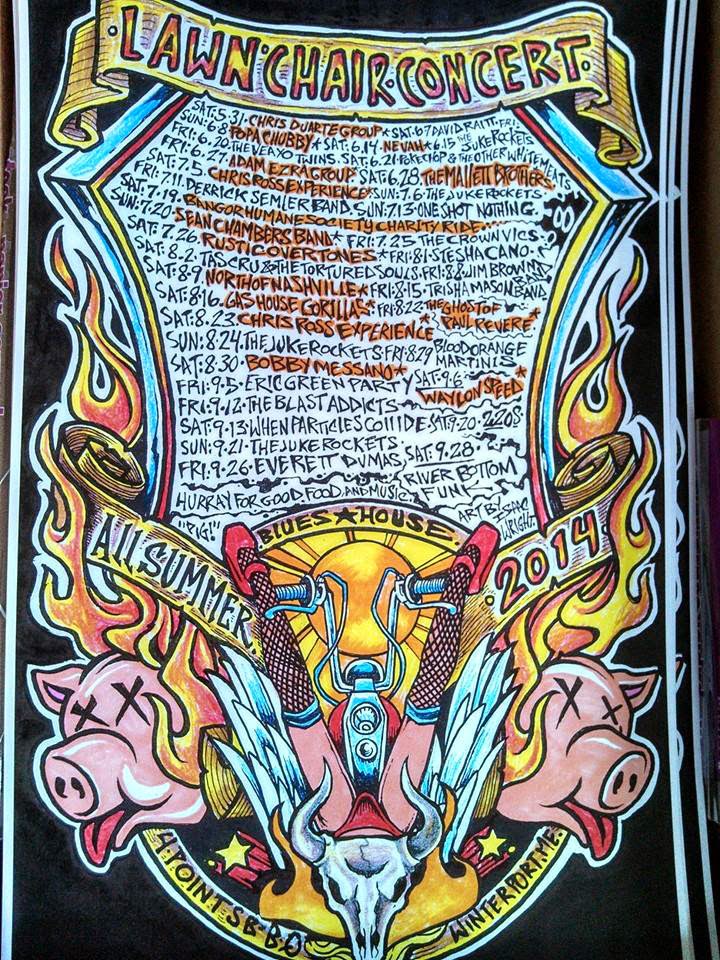 LAWN·CHAIR·CONCERT·
SAT:5.31·CHRIS DUARTE GROUP*SAT:6.7 DAVID RAITT·FRI:
SUN:6.8 POPA CHUBBY*SAT:6.14·NEVAH*6.15 THE JUKEROCKETS
FRI:6.20.THE VEAYO TWINS. SAT:6.21·PORKCHOP & THE OTHER WHITEMEATS
FRI:6.27·ADAM EZRA GROUP SAT:6.28.THE MALLETT BROTHERS.
SAT:7.5 CHRIS ROSS EXPERIENCE*SUN:7.6·THE JUKE ROCKETS.
FRI:7.11.DERRICK SEMLER BAND.SUN:7.13·ONE SHOT NOTHING.
SAT:7.19.BANGOR HUMANE SOCIETY CHARITY RIDE....
SUN:7.20·SEAN CHAMBERS BAND*FRI:7.25 THE CROWN VICS
SAT:7.26.RUSTIC OVERTONES*FRI:8.1·STESHA CANO.
SAT:8.2·TAS CRU & THE TORTURED SOULS.FRI:8.8·JIM BROWN
SAT:8.9 NORTH OF NASHVILLE*FRI:8.15·TRISHA MASON BAND
SAT:8.16.GAS HOUSE GORILLAS*FRI:8.22 THE GHOST OF PAUL REVERE*
SAT:8.23.CHRIS ROSS EXPERIENCE
SUN:8.24.THE JUKE ROCKETS FRI:8.29 BLOOD ORANGE MARTINIS
SAT:8.30·BOBBY MESSANO*
FRI:9.5·ERIC GREEN PARTY SAT:9.6·WAYLON SPEED*
FRI:9.12·THE BLAST ADDICTS
SAT:9.13·WHEN PARTICLES COLLIDE SAT:9.20·220S
SUN:9.21·THE JUKE ROCKETS.
FRI:9.26·EVERETT DUMAS, SAT:9.28.
RIVER BOTTOM FUNK
HURRAY FOR GOOD FOOD AND MUSIC.
"PIG!"
ART BY ISAAC WRIGHT.
BLUES★HOUSE.
All SUMMER.
·2014·
4·POINTS B·B·Q
WINTERPORT, ME.